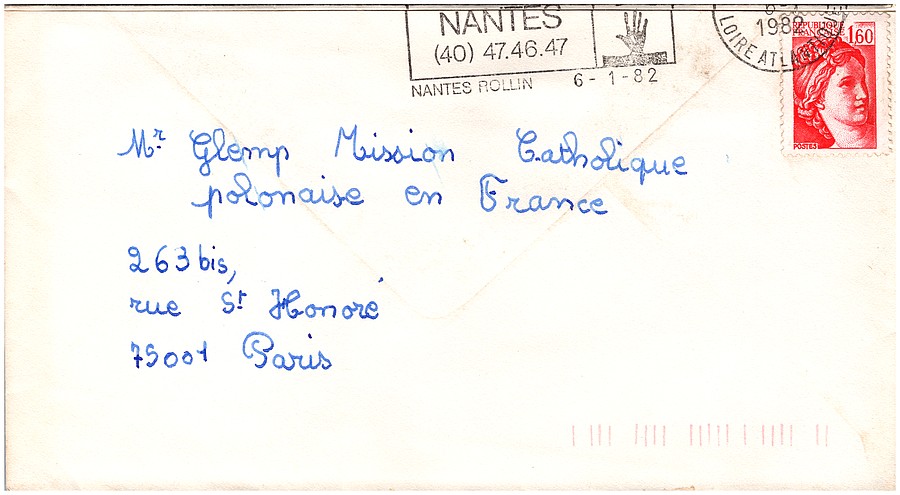 NANTES
(40) 47.46.47
NANTES ROLLIN 6-1-82
1982
LOIRE ATLANTIQUE
REPUBLIQUE
FRANCAISE
1,60
POSTES
Mr Glemp Mission Catholique
polonaise en France
263 bis,
rue St Honoré
75001 Paris